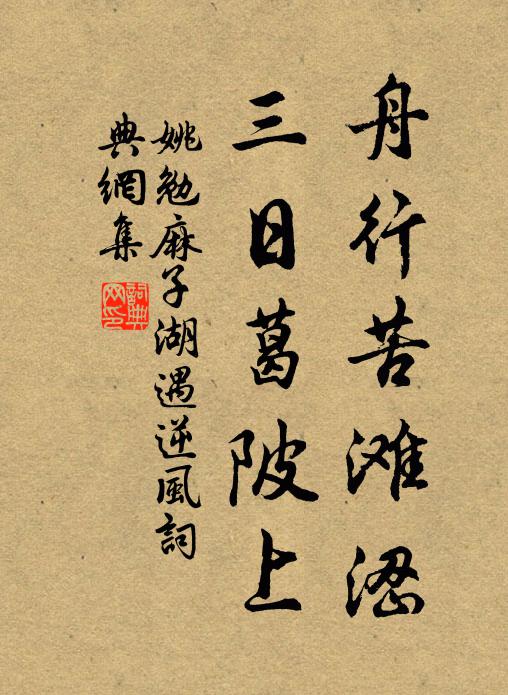 舟行苦滩涩
三日葛陂上
姚勉麻子湖遇逆风詞
典網集
詞典网印